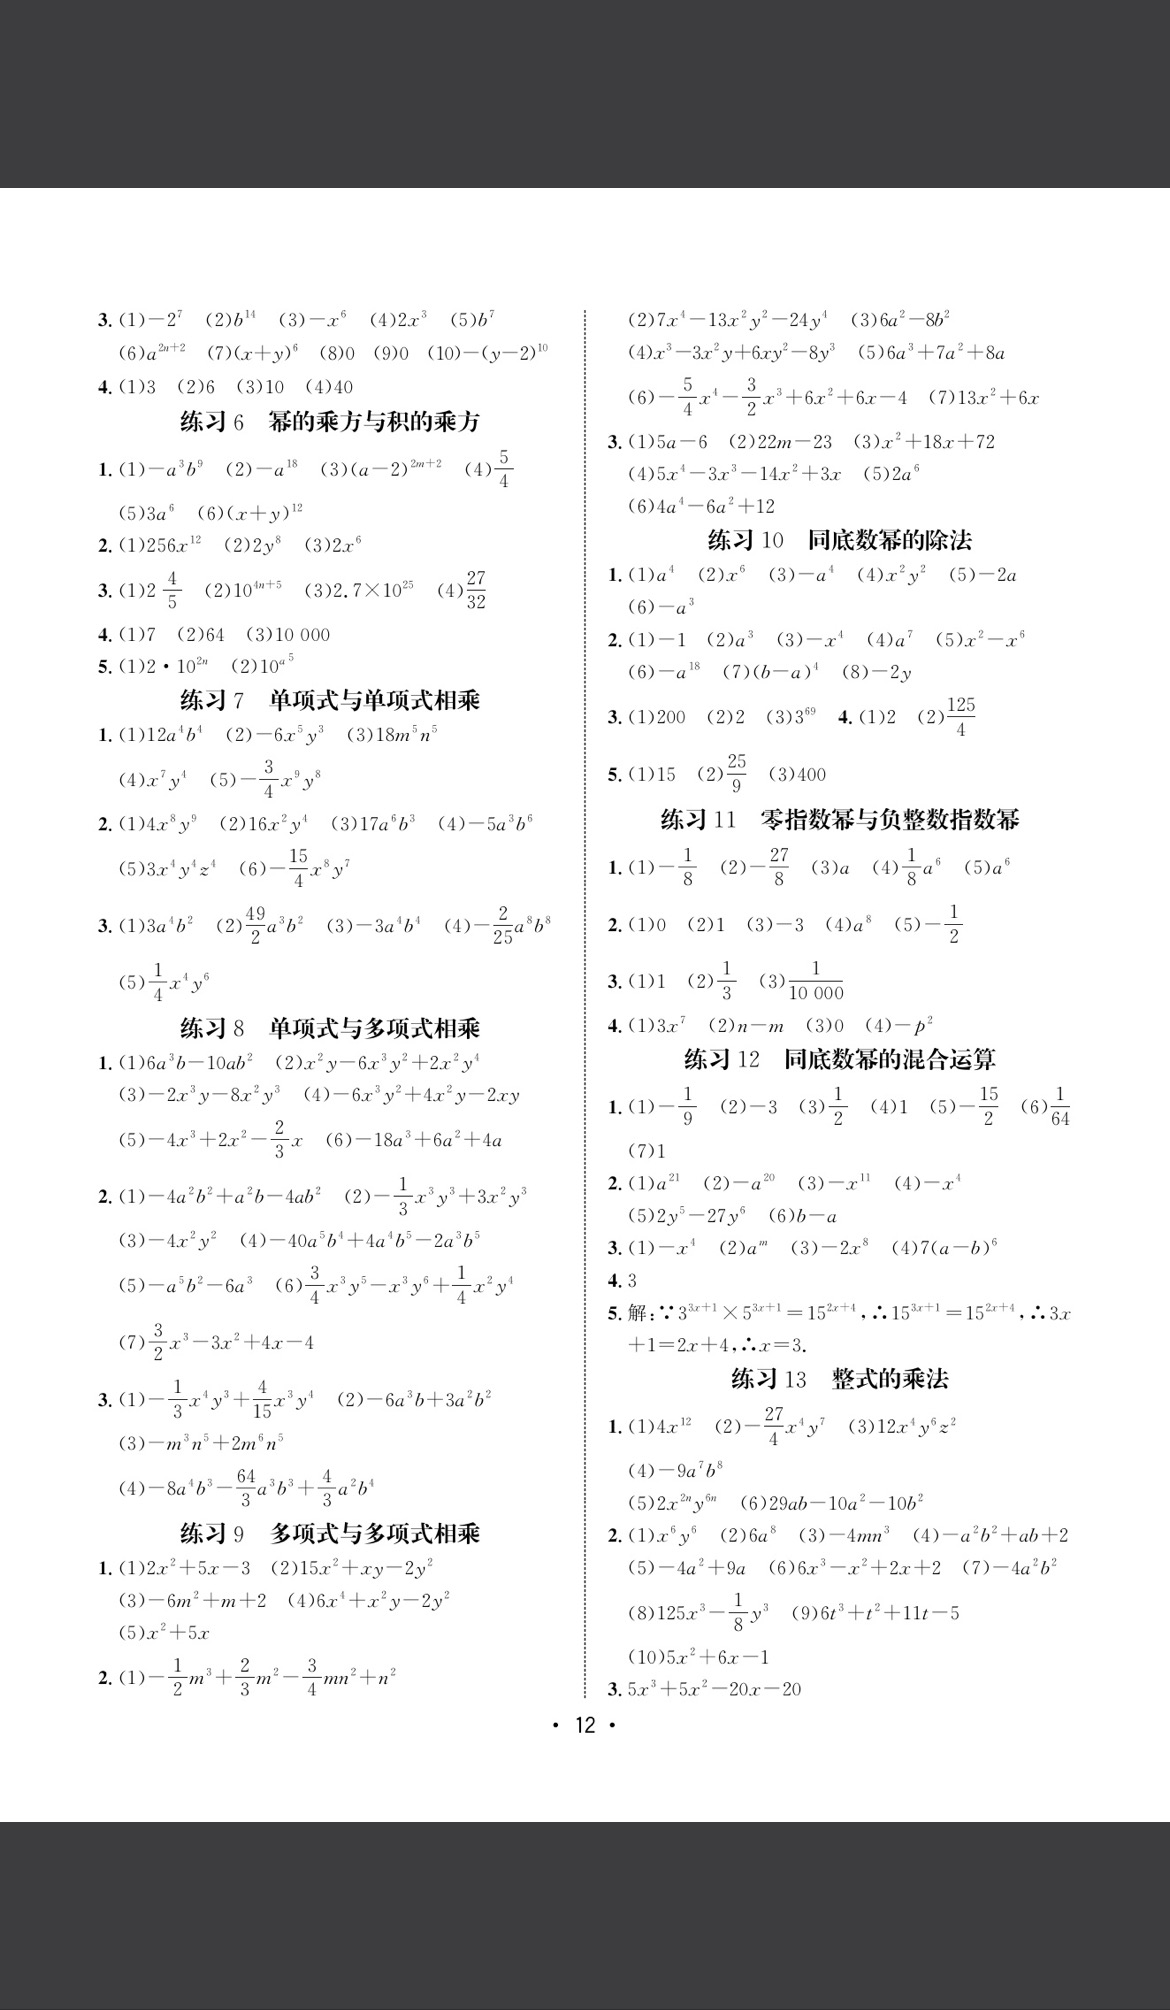 3. (1)－2⁷ (2)b¹⁴ (3)－x⁶ (4)2x³ (5)b⁷
(6)a²ⁿ⁺² (7)(x＋y)⁶ (8)0 (9)0 (10)－(y－2)¹⁰
4. (1)3 (2)6 (3)10 (4)40
练习 6 幂的乘方与积的乘方
1. (1)－a³b⁹ (2)－a¹⁸ (3)(a－2)^{2m＋2} (4)5/4
(5)3a⁶ (6)(x＋y)¹²
2. (1)256x¹² (2)2y⁸ (3)2x⁶
3. (1)2 4/5 (2)10⁴ⁿ⁺⁵ (3)2.7×10²⁵ (4)27/32
4. (1)7 (2)64 (3)10 000
5. (1)2·10²ⁿ (2)10^{a⁵}
练习 7 单项式与单项式相乘
1. (1)12a⁴b⁴ (2)－6x⁵y³ (3)18m⁵n⁵
(4)x⁷y⁴ (5)－3/4 x⁹y⁸
2. (1)4x⁸y⁹ (2)16x²y⁴ (3)17a⁶b³ (4)－5a³b⁶
(5)3x⁴y⁴z⁴ (6)－15/4 x⁸y⁷
3. (1)3a⁴b² (2)49/2 a³b² (3)－3a⁴b⁴ (4)－2/25 a⁸b⁸
(5)1/4 x⁴y⁶
练习 8 单项式与多项式相乘
1. (1)6a³b－10ab² (2)x²y－6x³y²＋2x²y⁴
(3)－2x³y－8x²y³ (4)－6x³y²＋4x²y－2xy
(5)－4x³＋2x²－2/3 x (6)－18a³＋6a²＋4a
2. (1)－4a²b²＋a²b－4ab² (2)－1/3 x³y³＋3x²y³
(3)－4x²y² (4)－40a⁵b⁴＋4a⁴b⁵－2a³b⁵
(5)－a⁵b²－6a³ (6)3/4 x³y⁵－x³y⁶＋1/4 x²y⁴
(7)3/2 x³－3x²＋4x－4
3. (1)－1/3 x⁴y³＋4/15 x³y⁴ (2)－6a³b＋3a²b²
(3)－m³n⁵＋2m⁶n⁵
(4)－8a⁴b³－64/3 a³b³＋4/3 a²b⁴
练习 9 多项式与多项式相乘
1. (1)2x²＋5x－3 (2)15x²＋xy－2y²
(3)－6m²＋m＋2 (4)6x⁴＋x²y－2y²
(5)x²＋5x
2. (1)－1/2 m³＋2/3 m²－3/4 mn²＋n²
(2)7x⁴－13x²y²－24y⁴ (3)6a²－8b²
(4)x³－3x²y＋6xy²－8y³ (5)6a³＋7a²＋8a
(6)－5/4 x⁴－3/2 x³＋6x²＋6x－4 (7)13x²＋6x
3. (1)5a－6 (2)22m－23 (3)x²＋18x＋72
(4)5x⁴－3x³－14x²＋3x (5)2a⁶
(6)4a⁴－6a²＋12
练习 10 同底数幂的除法
1. (1)a⁴ (2)x⁶ (3)－a⁴ (4)x²y² (5)－2a
(6)－a³
2. (1)－1 (2)a³ (3)－x⁴ (4)a⁷ (5)x²－x⁶
(6)－a¹⁸ (7)(b－a)⁴ (8)－2y
3. (1)200 (2)2 (3)3⁶⁹ 4. (1)2 (2)125/4
5. (1)15 (2)25/9 (3)400
练习 11 零指数幂与负整数指数幂
1. (1)－1/8 (2)－27/8 (3)a (4)1/8 a⁶ (5)a⁶
2. (1)0 (2)1 (3)－3 (4)a⁸ (5)－1/2
3. (1)1 (2)1/3 (3)1/10 000
4. (1)3x⁷ (2)n－m (3)0 (4)－p²
练习 12 同底数幂的混合运算
1. (1)－1/9 (2)－3 (3)1/2 (4)1 (5)－15/2 (6)1/64
(7)1
2. (1)a²¹ (2)－a²⁰ (3)－x¹¹ (4)－x⁴
(5)2y⁵－27y⁶ (6)b－a
3. (1)－x⁴ (2)aᵐ (3)－2x⁸ (4)7(a－b)⁶
4. 3
5. 解：∵3^{3x＋1}×5^{3x＋1}＝15^{2x＋4}，∴15^{3x＋1}＝15^{2x＋4}，∴3x
＋1＝2x＋4，∴x＝3.
练习 13 整式的乘法
1. (1)4x¹² (2)－27/4 x⁴y⁷ (3)12x⁴y⁶z²
(4)－9a⁷b⁸
(5)2x²ⁿy⁶ⁿ (6)29ab－10a²－10b²
2. (1)x⁶y⁶ (2)6a⁸ (3)－4mn³ (4)－a²b²＋ab＋2
(5)－4a²＋9a (6)6x³－x²＋2x＋2 (7)－4a²b²
(8)125x³－1/8 y³ (9)6t³＋t²＋11t－5
(10)5x²＋6x－1
3. 5x³＋5x²－20x－20
· 12 ·